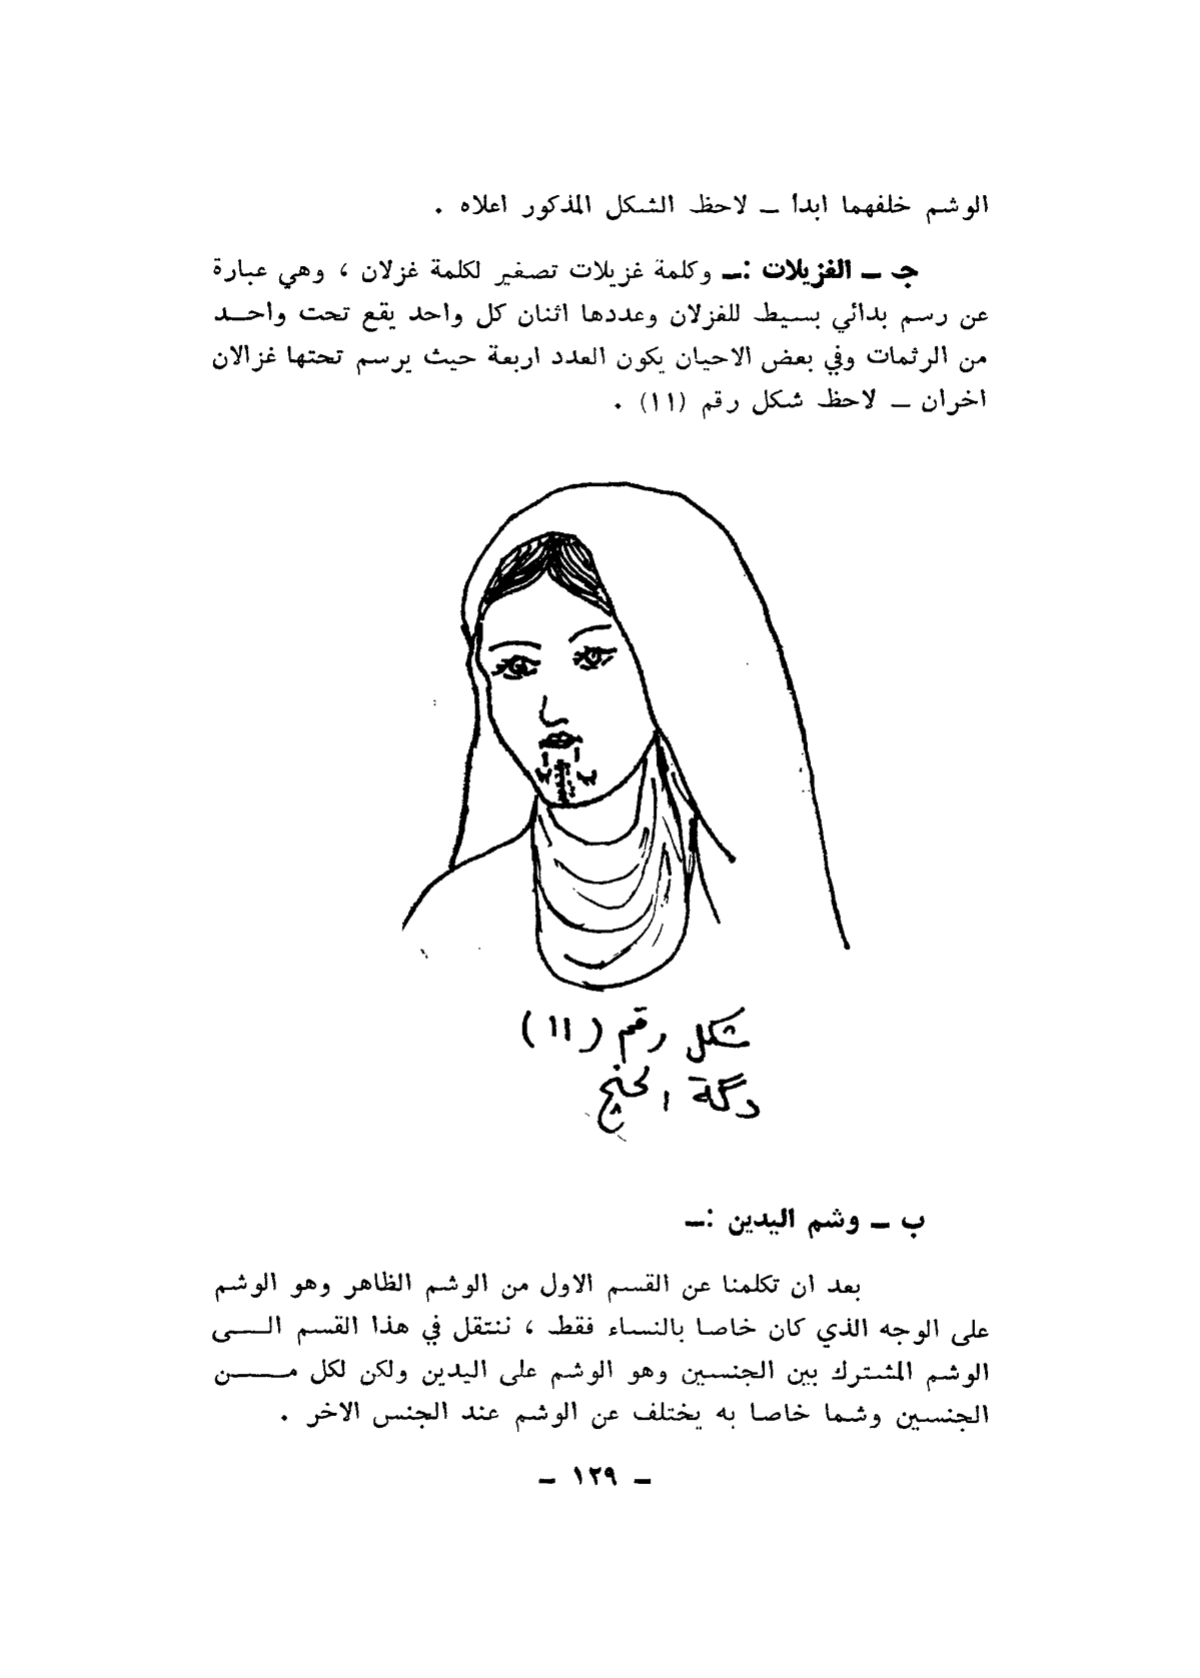 الوشم خلفهما ابدا ــ لاحظ الشكل المذكور اعلاه .
جـ ــ الغزيلات :ــ وكلمة غزيلات تصغير لكلمة غزلان ، وهي عبارة
عن رسم بدائي بسيط للغزلان وعددها اثنان كل واحد يقع تحت واحــد
من الرثمات وفي بعض الاحيان يكون العدد اربعة حيث يرسم تحتها غزالان
اخران ــ لاحظ شكل رقم (١١) .
شكل رقم (١١)
دگة الحنچ
ب ــ وشم اليدين :ــ
بعد ان تكلمنا عن القسم الاول من الوشم الظاهر وهو الوشم
على الوجه الذي كان خاصا بالنساء فقط ، ننتقل في هذا القسم الــى
الوشم المشترك بين الجنسين وهو الوشم على اليدين ولكن لكل مــــن
الجنسين وشما خاصا به يختلف عن الوشم عند الجنس الاخر .
ــ ١٢٩ ــ